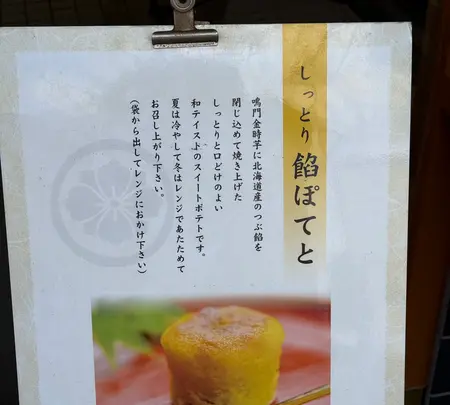 しっとり餡ぽてと
鳴門金時芋に北海道産のつぶ餡を
閉じ込めて焼き上げた
しっとりと口どけのよい
和テイストのスイートポテトです。
夏は冷やして冬はレンジであたためて
お召し上がり下さい。
(袋から出してレンジにおかけ下さい)